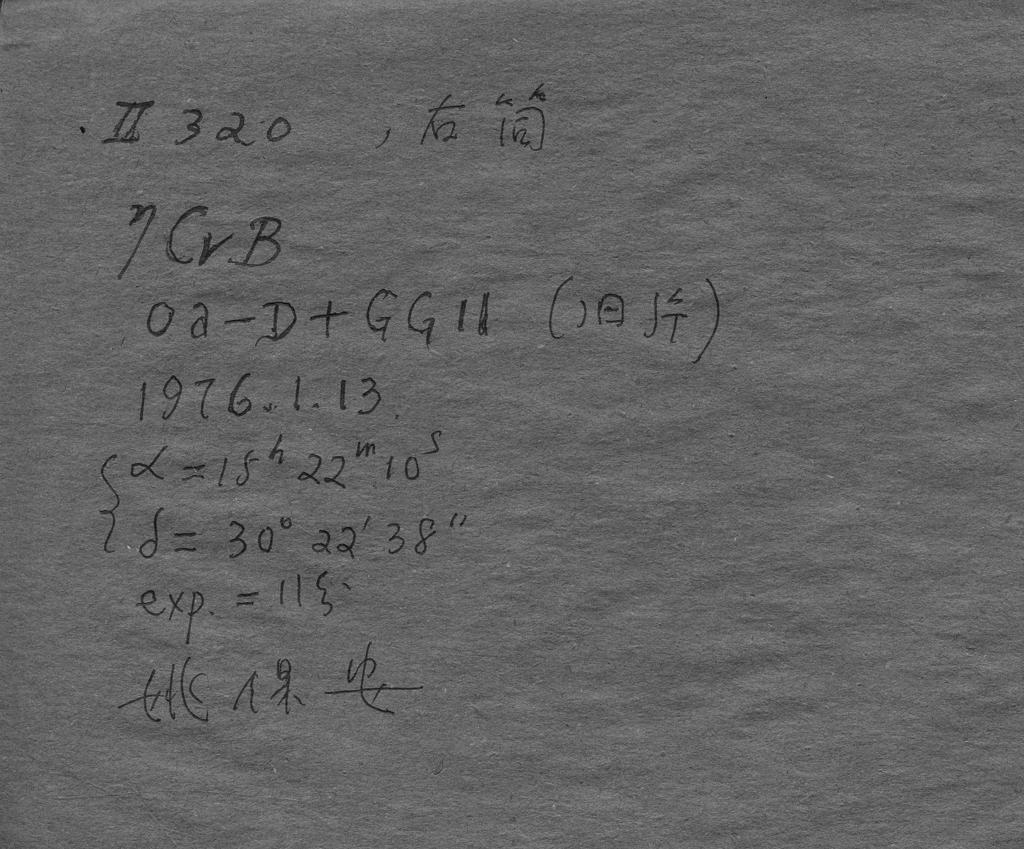 . II 320 , 右筒
η CrB
Oa-D+GG11 (旧片)
1976.1.13.
α = 15ʰ 22ᵐ 10ˢ
δ = 30° 22' 38"
exp. = 11
姚保安